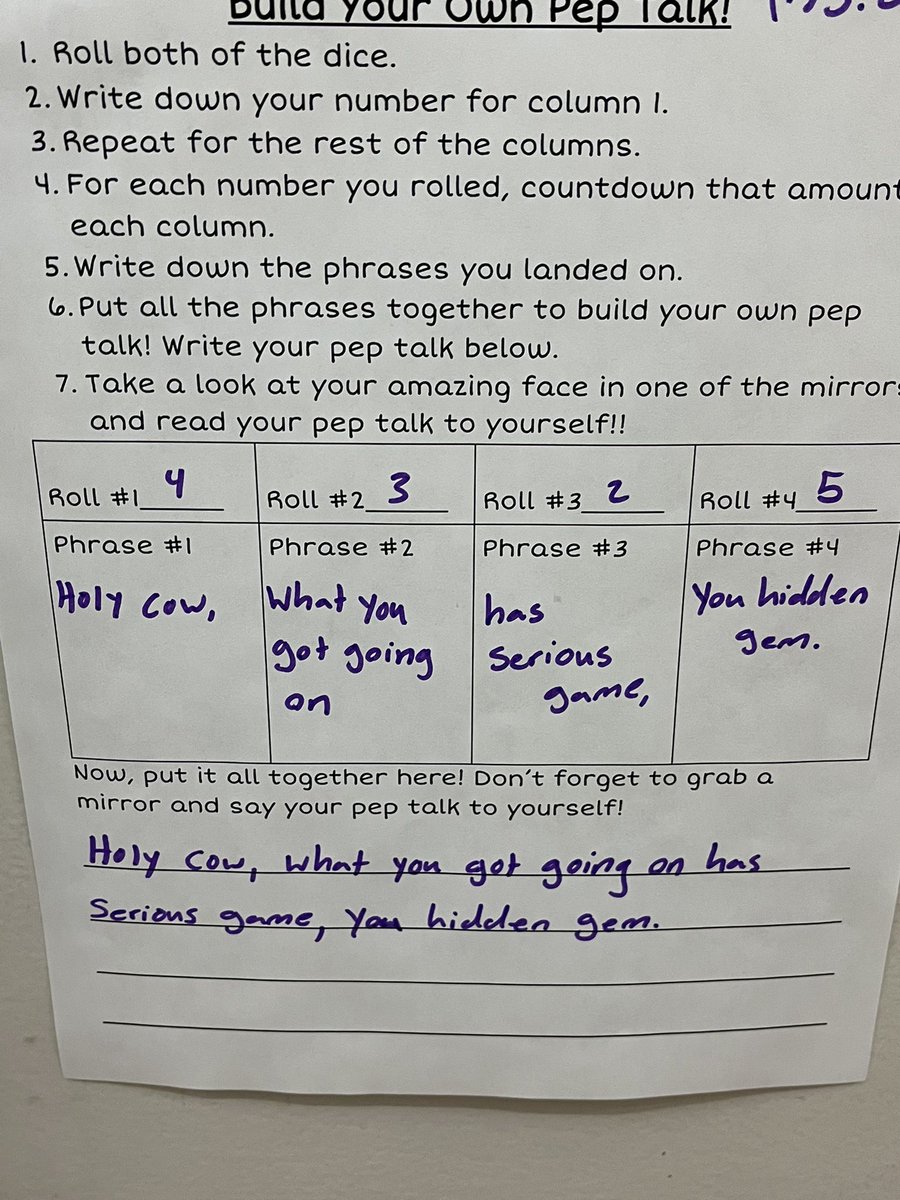 Build Your Own Pep Talk!
1. Roll both of the dice.
2. Write down your number for column 1.
3. Repeat for the rest of the columns.
4. For each number you rolled, countdown that amount
each column.
5. Write down the phrases you landed on.
6. Put all the phrases together to build your own pep
talk! Write your pep talk below.
7. Take a look at your amazing face in one of the mirrors
and read your pep talk to yourself!!
Roll #1 4 Roll #2 3 Roll #3 2 Roll #4 5
Phrase #1 Phrase #2 Phrase #3 Phrase #4
Holy cow, What you has You hidden
got going serious gem.
on game,
Now, put it all together here! Don't forget to grab a
mirror and say your pep talk to yourself!
Holy cow, what you got going on has
serious game, you hidden gem.